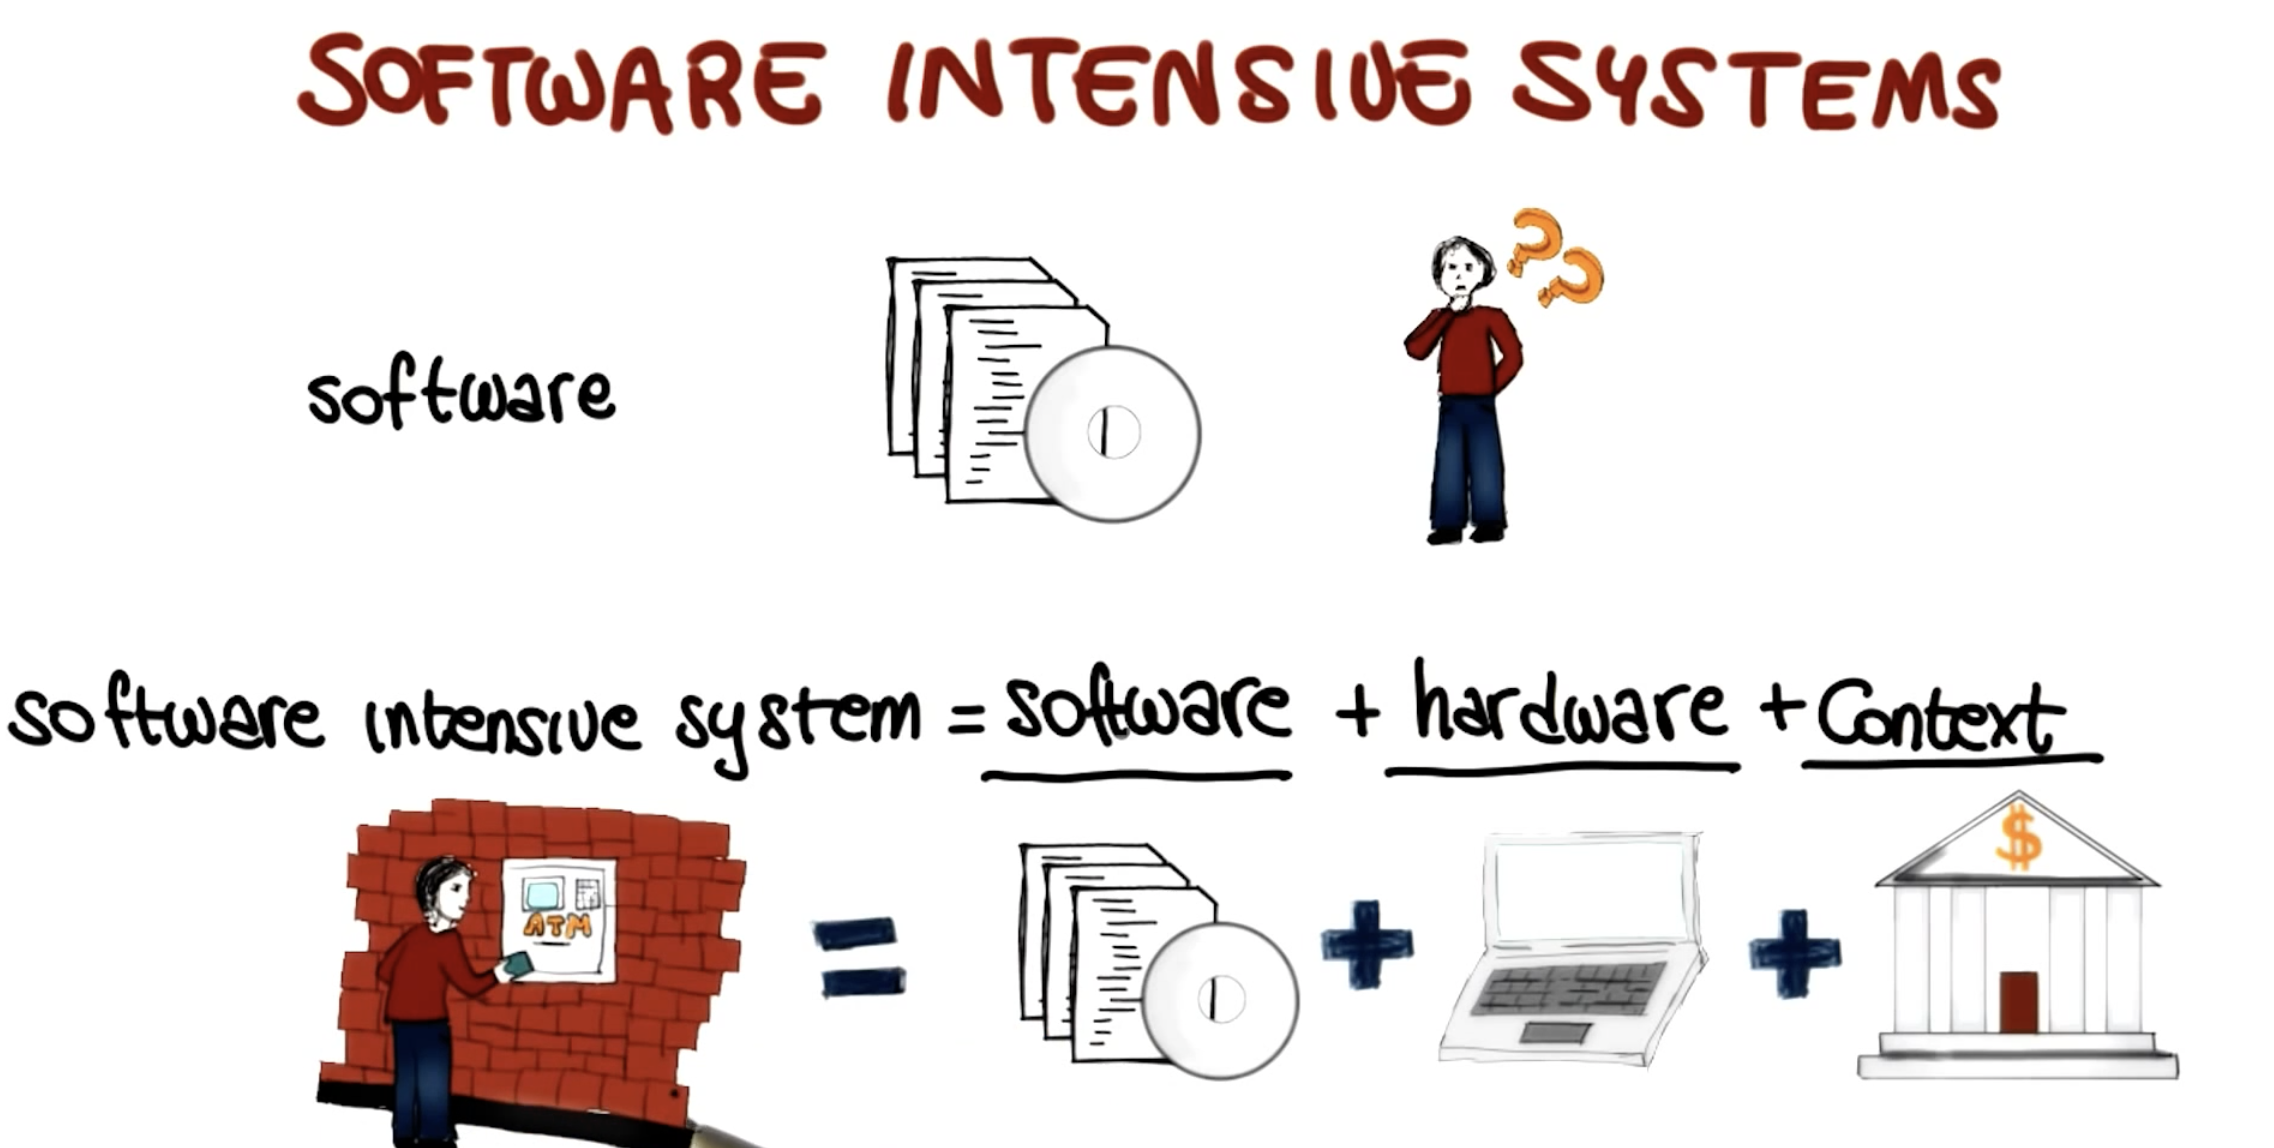 SOFTWARE INTENSIVE SYSTEMS
software
??
software intensive system = software + hardware + Context
$
ATM
= + +